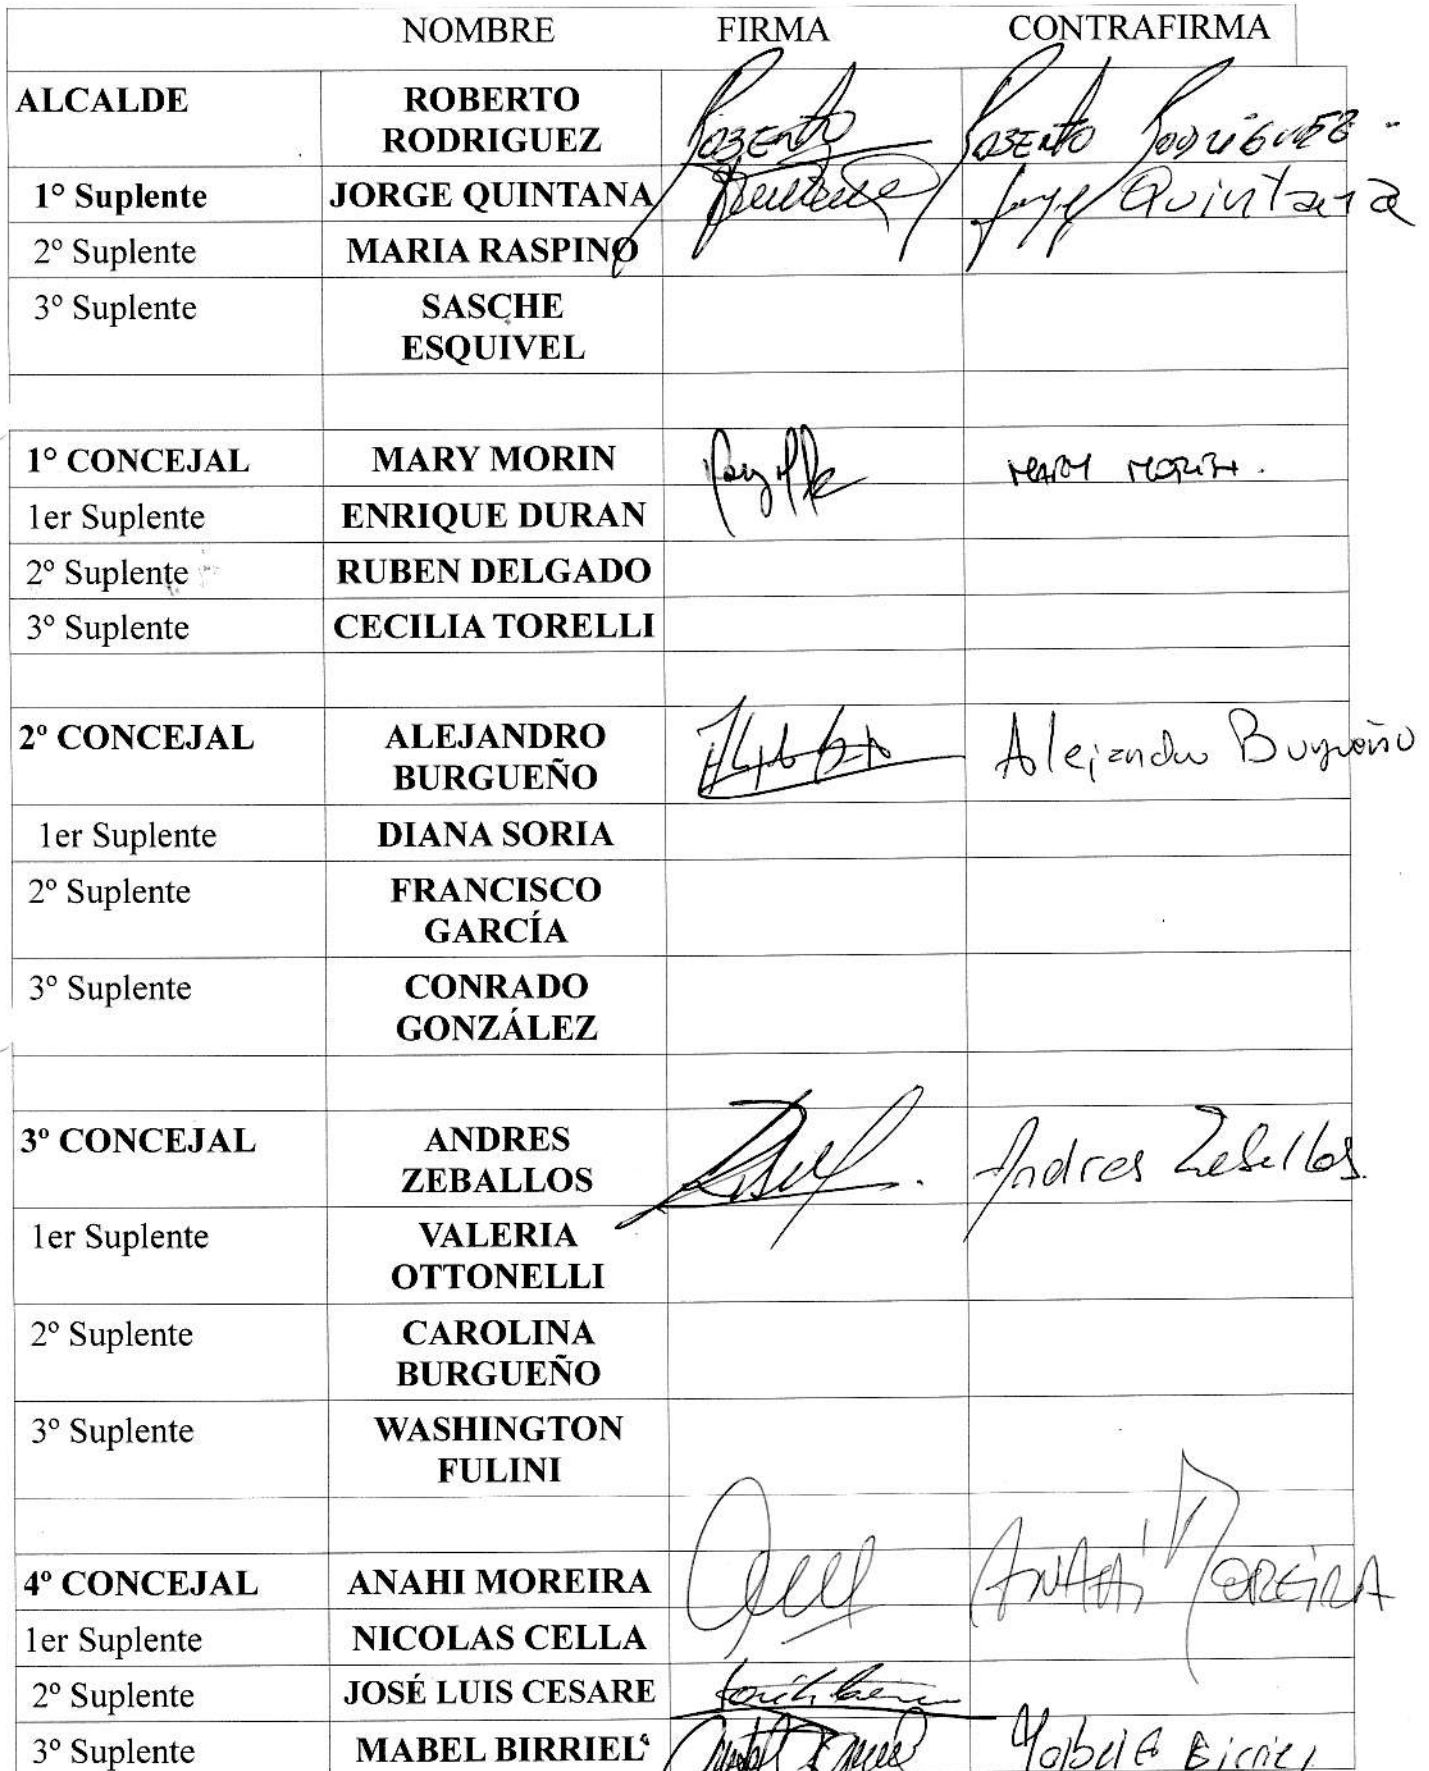 NOMBRE FIRMA CONTRAFIRMA
ALCALDE ROBERTO Roberto Roberto Rodríguez
RODRIGUEZ
1° Suplente JORGE QUINTANA Jorge Quintana
2º Suplente MARIA RASPINO
3º Suplente SASCHE
ESQUIVEL
1° CONCEJAL MARY MORIN MARY MORIN.
1er Suplente ENRIQUE DURAN
2º Suplente RUBEN DELGADO
3º Suplente CECILIA TORELLI
2º CONCEJAL ALEJANDRO Alejandro Burgueño
BURGUEÑO
1er Suplente DIANA SORIA
2º Suplente FRANCISCO
GARCÍA
3º Suplente CONRADO
GONZÁLEZ
3º CONCEJAL ANDRES Andres Zeballos.
ZEBALLOS
1er Suplente VALERIA
OTTONELLI
2º Suplente CAROLINA
BURGUEÑO
3º Suplente WASHINGTON
FULINI
4º CONCEJAL ANAHI MOREIRA ANAHÍ MOREIRA
1er Suplente NICOLAS CELLA
2º Suplente JOSÉ LUIS CESARE
3º Suplente MABEL BIRRIEL Birriel